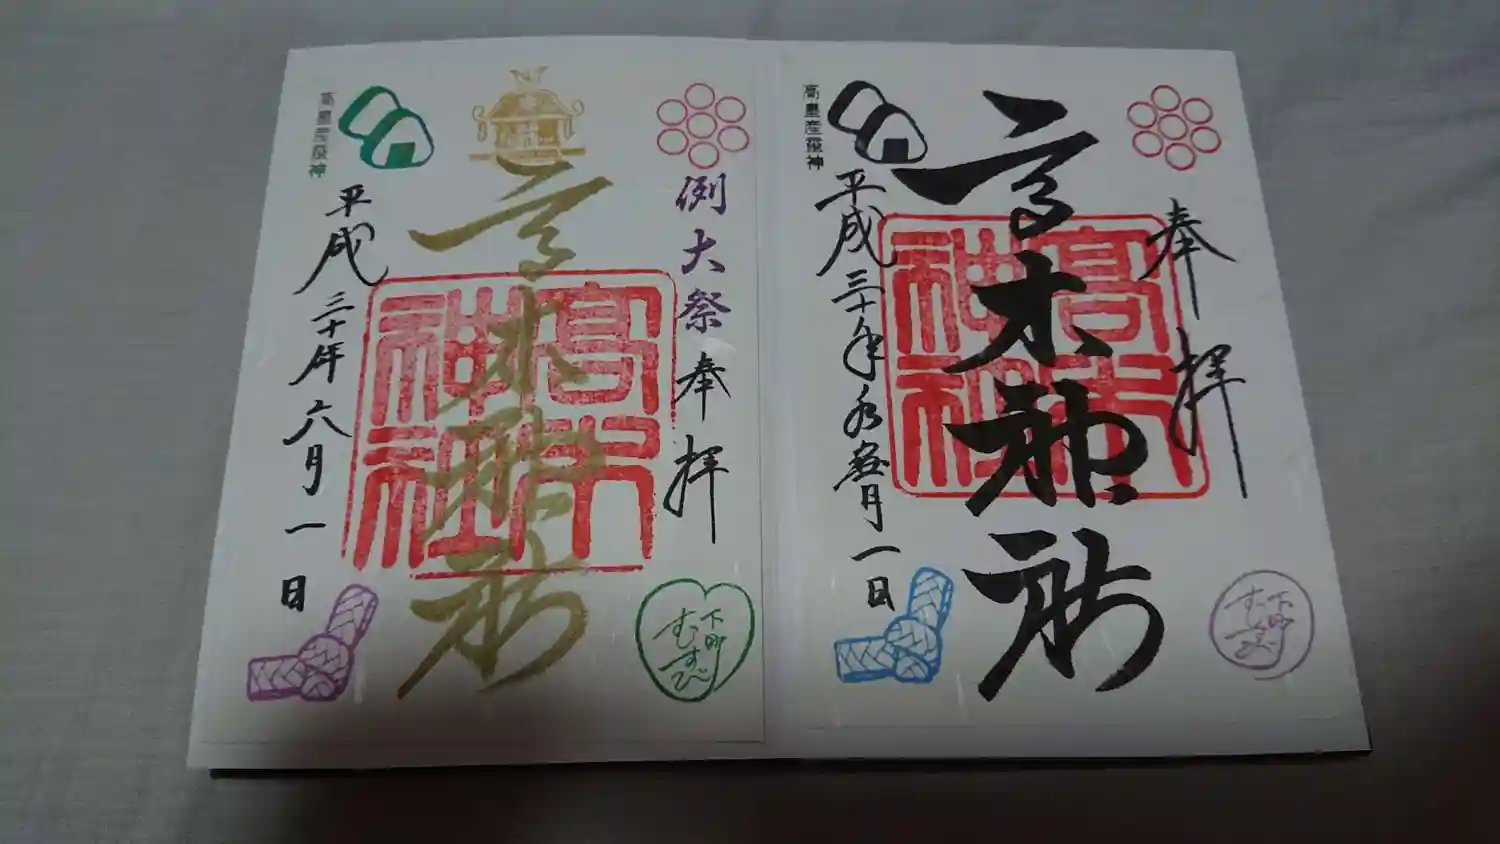 奉拝
高木神社
高木神社
平成三十年水無月一日
高皇産霊神
下町
むすび
例大祭奉拝
高木神社
高木神社
平成三十年六月一日
高皇産霊神
下町
むすび